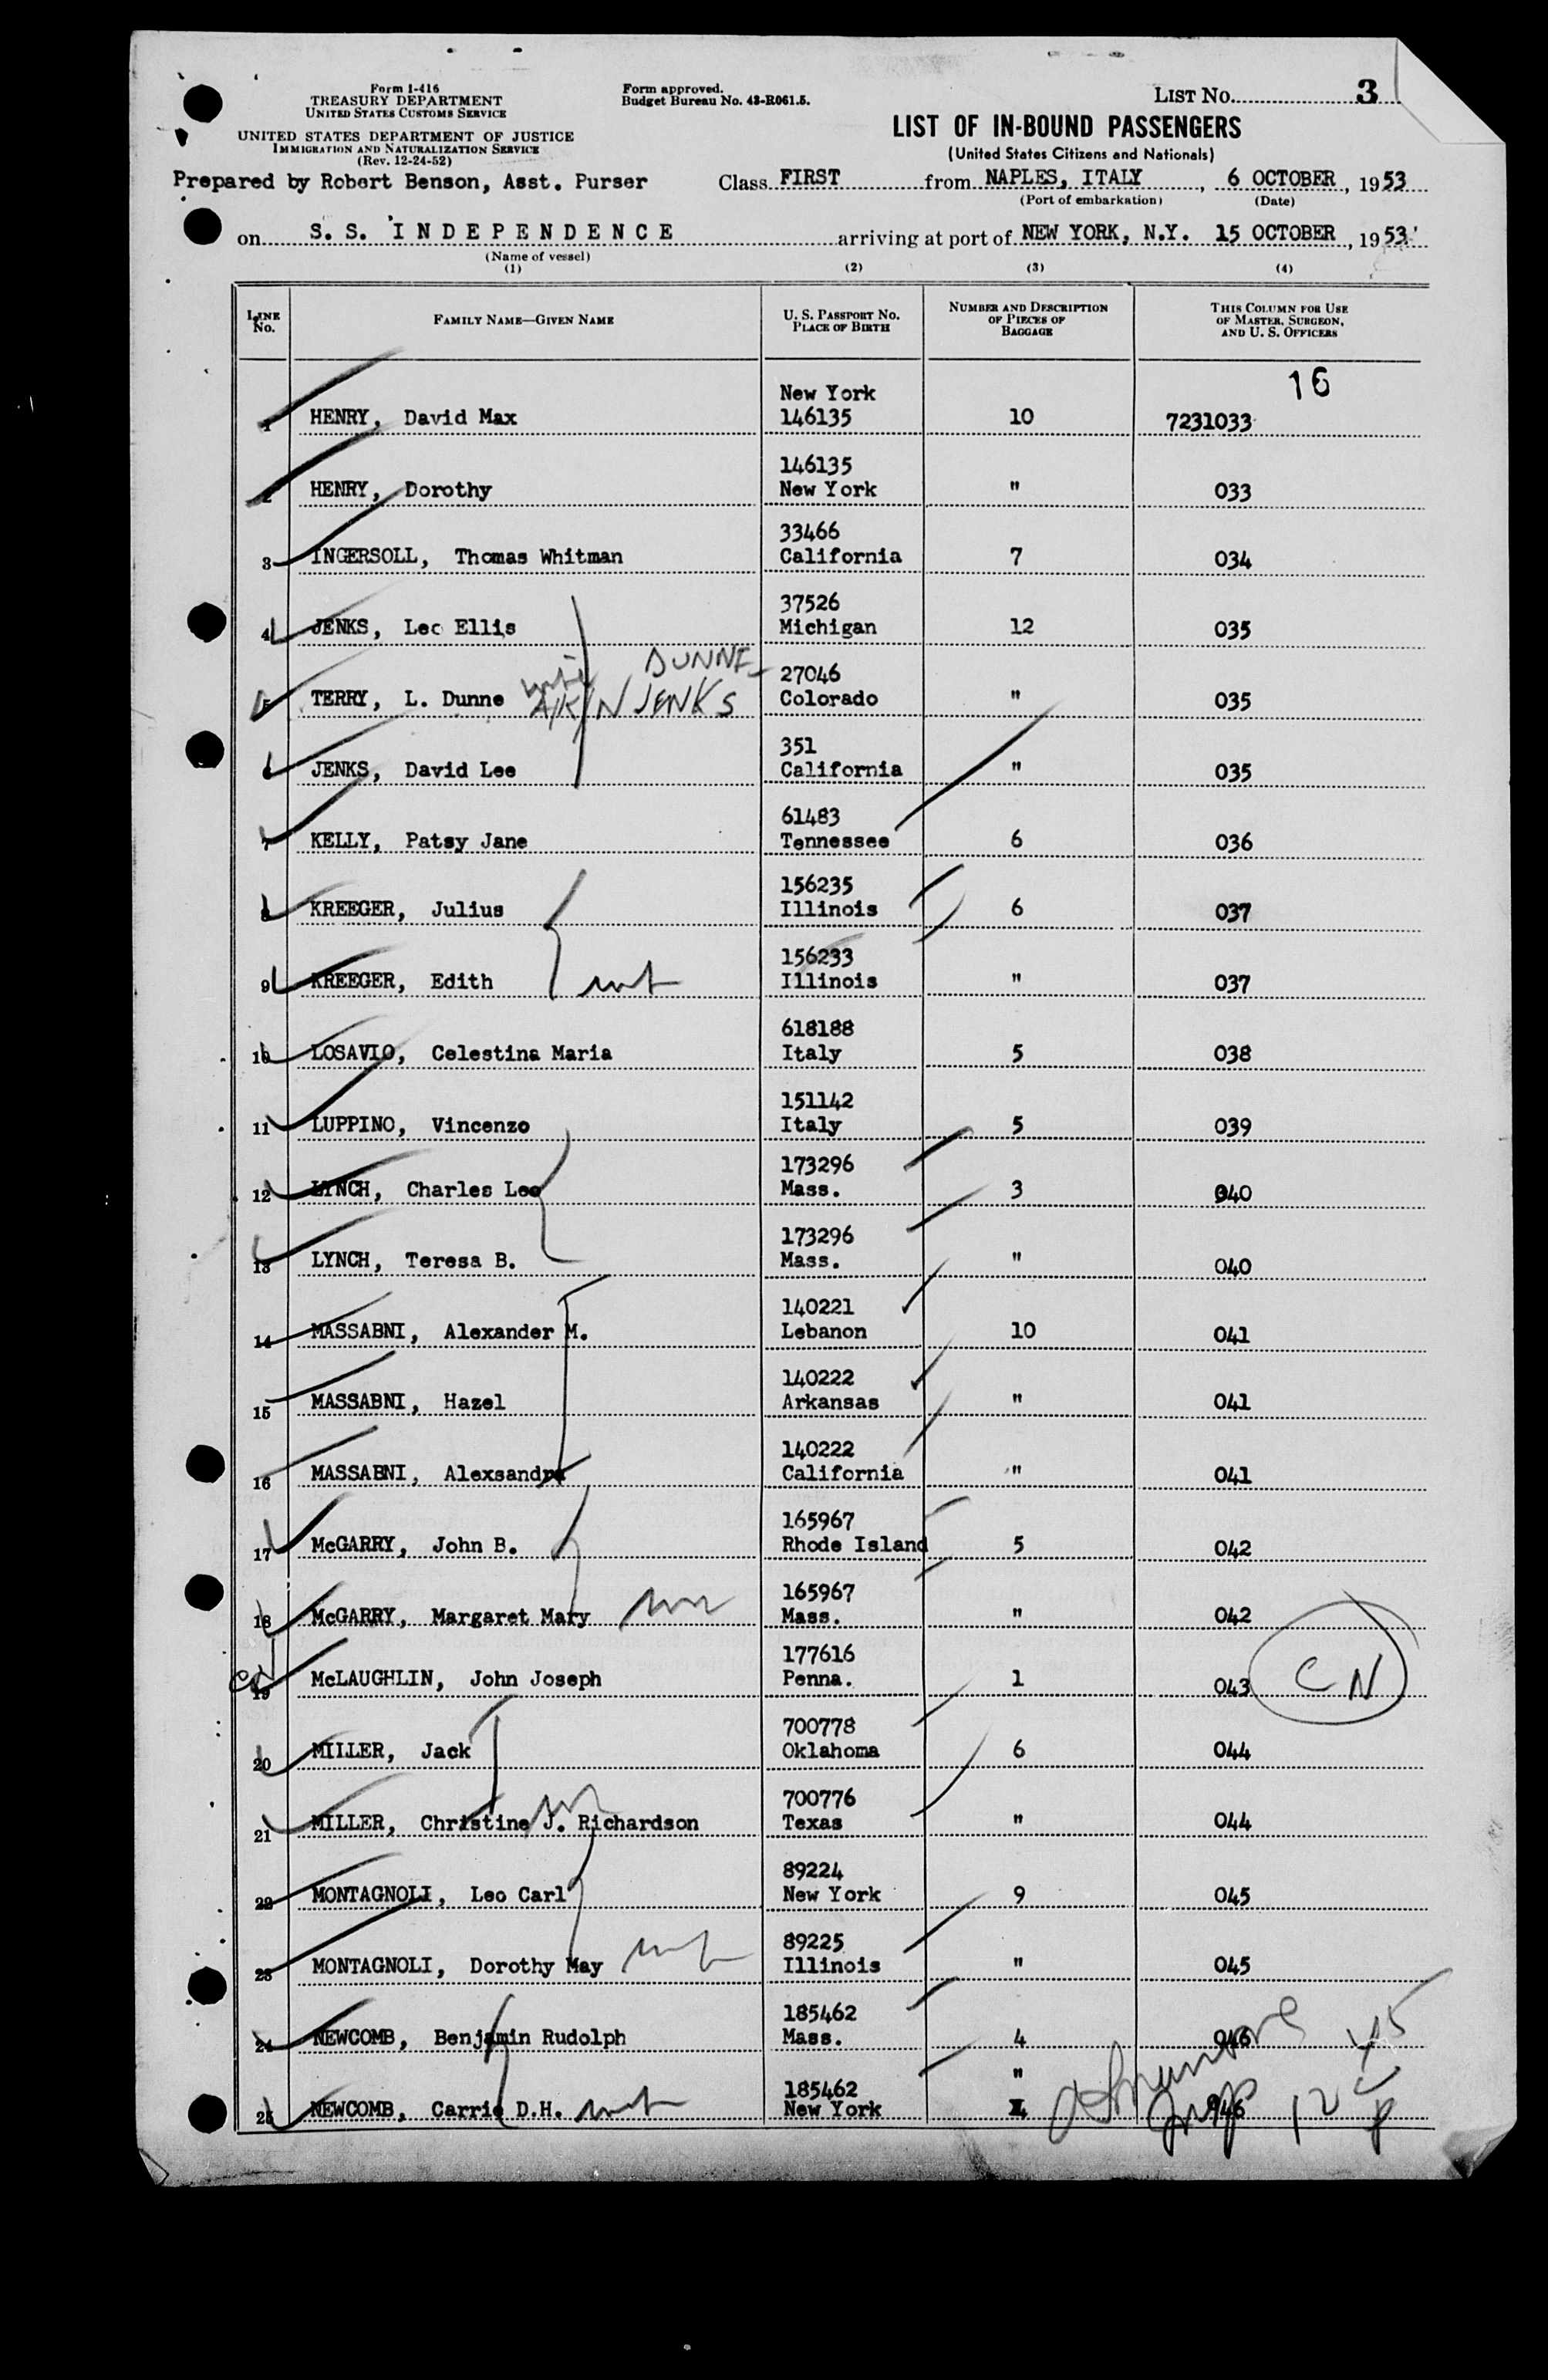 Form I-416
TREASURY DEPARTMENT
UNITED STATES CUSTOMS SERVICE
UNITED STATES DEPARTMENT OF JUSTICE
IMMIGRATION AND NATURALIZATION SERVICE
(Rev. 12-24-52)
Form approved.
Budget Bureau No. 43-R061.5.
LIST NO. 3
LIST OF IN-BOUND PASSENGERS
(United States Citizens and Nationals)
Prepared by Robert Benson, Asst. Purser Class FIRST from NAPLES, ITALY, 6 OCTOBER, 1953
(Port of embarkation) (Date)
on S. S. INDEPENDENCE arriving at port of NEW YORK, N.Y. 15 OCTOBER, 1953
(Name of vessel)
(1) (2) (3) (4)
LINE NO. FAMILY NAME—GIVEN NAME U. S. PASSPORT NO. PLACE OF BIRTH NUMBER AND DESCRIPTION OF PIECES OF BAGGAGE THIS COLUMN FOR USE OF MASTER, SURGEON, AND U. S. OFFICERS
16
New York
1 HENRY, David Max 146135 10 7231033
146135
2 HENRY, Dorothy New York " 033
33466
3 INGERSOLL, Thomas Whitman California 7 034
37526
4 JENKS, Leo Ellis Michigan 12 035
DUNNE
27046
5 TERRY, L. Dunne JENKS Colorado " 035
351
6 JENKS, David Lee California " 035
61483
7 KELLY, Patsy Jane Tennessee 6 036
156235
8 KREEGER, Julius Illinois 6 037
156233
9 KREEGER, Edith Illinois " 037
618188
10 LOSAVIO, Celestina Maria Italy 5 038
151142
11 LUPPINO, Vincenzo Italy 5 039
173296
12 LYNCH, Charles Leo Mass. 3 040
173296
13 LYNCH, Teresa B. Mass. " 040
140221
14 MASSABNI, Alexander M. Lebanon 10 041
140222
15 MASSABNI, Hazel Arkansas " 041
140222
16 MASSABNI, Alexsandra California " 041
165967
17 McGARRY, John B. Rhode Island 5 042
165967
18 McGARRY, Margaret Mary Mass. " 042
177616
19 McLAUGHLIN, John Joseph Penna. 1 043 CN
700778
20 MILLER, Jack Oklahoma 6 044
700776
21 MILLER, Christine J. Richardson Texas " 044
89224
22 MONTAGNOLI, Leo Carl New York 9 045
89225
23 MONTAGNOLI, Dorothy May Illinois " 045
185462
24 NEWCOMB, Benjamin Rudolph Mass. 4 046
185462 "
25 NEWCOMB, Carrie D.H. New York 046